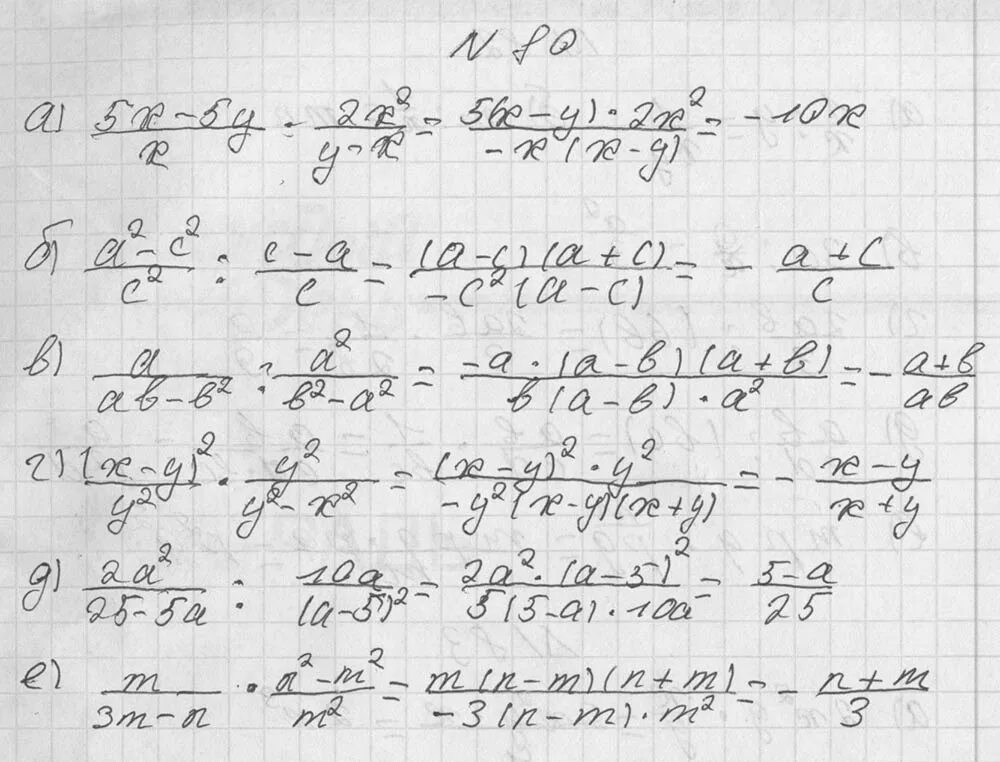 N 80
а) (5x-5y)/x · 2x²/(y-x) = (5(x-y)·2x²)/(-x(x-y)) = -10x
б) (a²-c²)/c² : (c-a)/c = ((a-c)(a+c))/(-c²(a-c)) = - (a+c)/c
в) a/(ab-b²) : a²/(b²-a²) = (-a·(a-b)(a+b))/(b(a-b)·a²) = - (a+b)/(ab)
г) (x-y)²/y² · y²/(y²-x²) = ((x-y)²·y²)/(-y²(x-y)(x+y)) = - (x-y)/(x+y)
д) 2a²/(25-5a) : 10a/(a-5)² = (2a²·(a-5)²)/(5(5-a)·10a) = (5-a)/25
е) m/(3m-n) · (n²-m²)/m² = (m(n-m)(n+m))/(-3(n-m)·m²) = - (n+m)/3